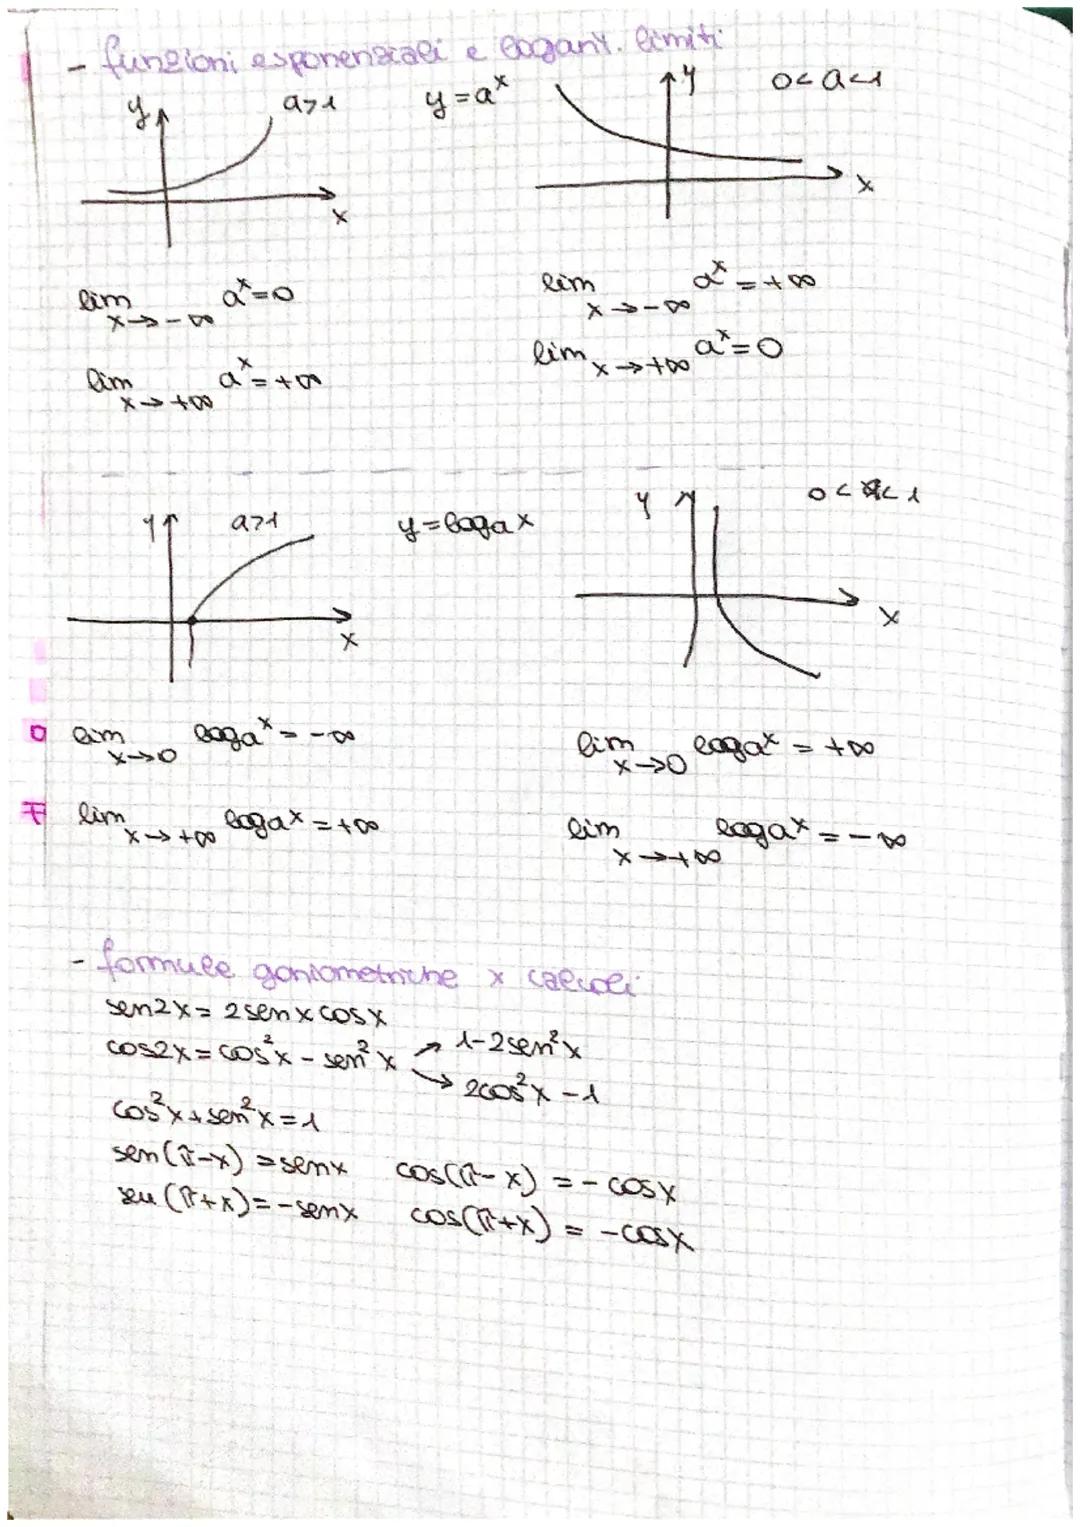 - funzioni esponenziali e logarit. limiti
y a>1 y=a^x y 0<a<1
x x
lim x→-∞ a^x=0 lim x→-∞ a^x=+∞
lim x→+∞ a^x=+∞ lim x→+∞ a^x=0
y a>1 y=logax y 0<a<1
x x
lim x→0 loga^x=-∞ lim x→0 loga^x=+∞
lim x→+∞ loga^x=+∞ lim x→+∞ loga^x=-∞
- formule goniometriche x calcoli
sen2x=2senxcosx
cos2x=cos²x-sen²x → 1-2sen²x
→ 2cos²x-1
cos²x+sen²x=1
sen(π-x)=senx cos(π-x)=-cosx
sen(π+x)=-senx cos(π+x)=-cosx